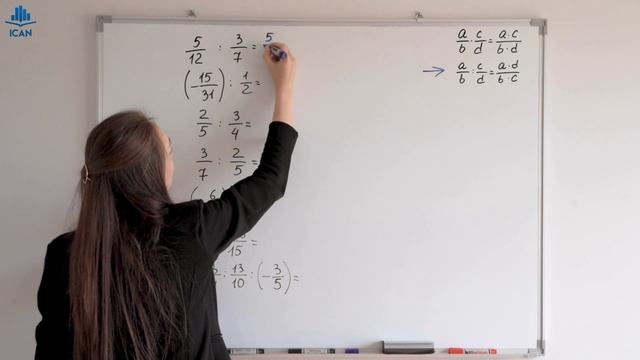 ICAN
5/12 : 3/7 = 5
(-15/31) : 1/2 =
2/5 : 3/4 =
3/7 : 2/5 =
6
15 =
13/10 : (-3/5) =
a/b · c/d = a·c/b·d
→ a/b : c/d = a·d/b·c